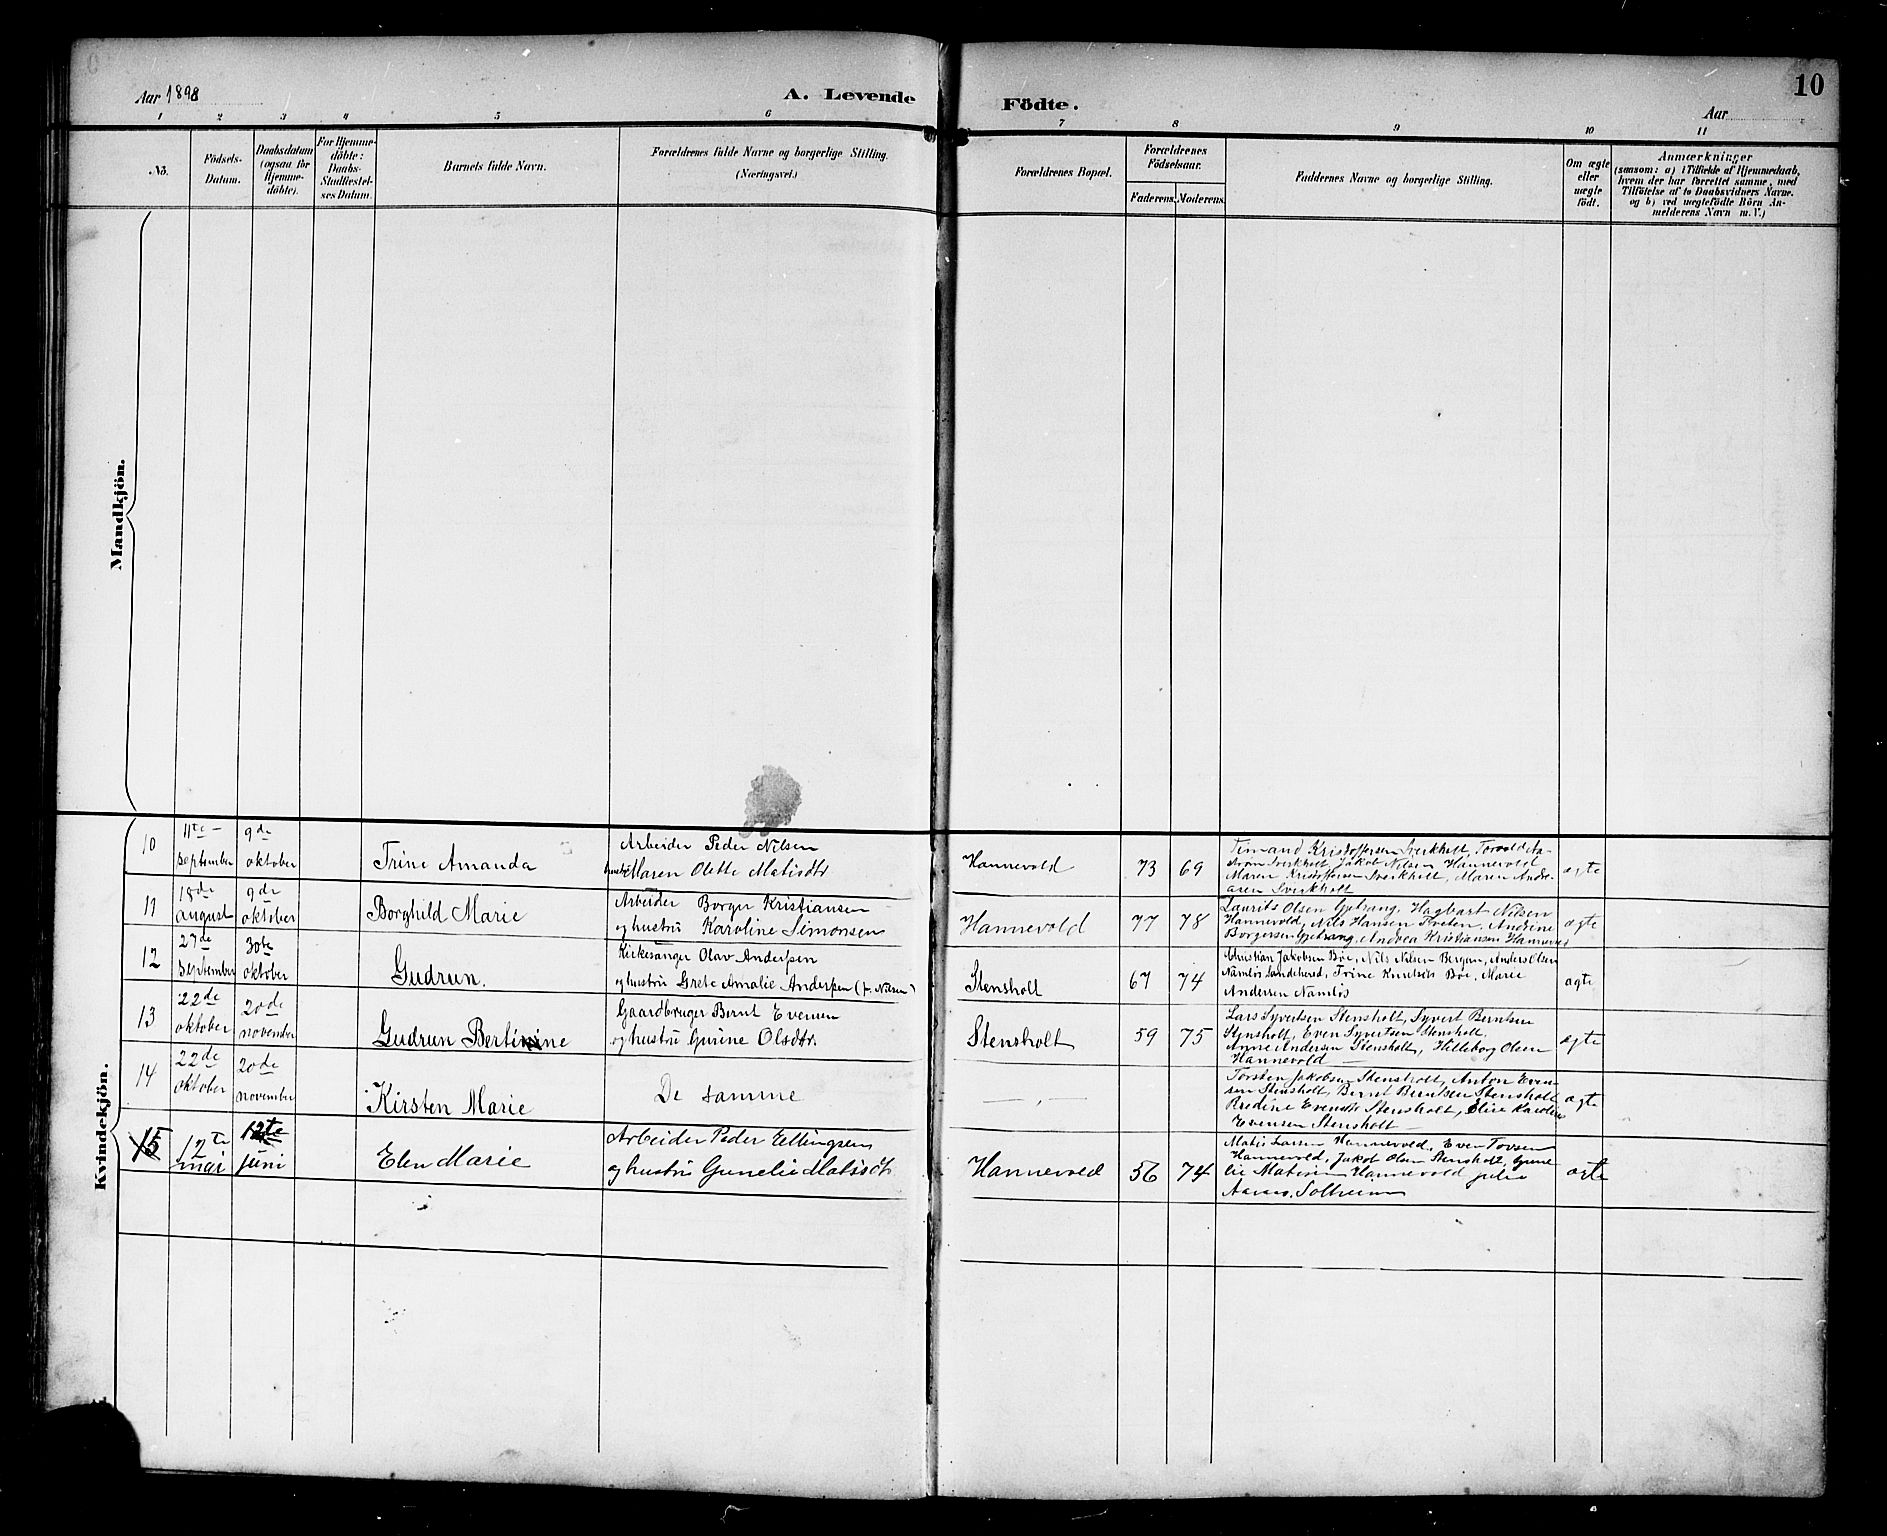 Aar 1898
A. Levende
Födte.
Aar
10
1 2 3 4 5 6 7 8 9 10 11
No.
Födsels-
Datum.
Daabsdatum
(ogsaa for
Hjemme-
döbte).
For Hjemme-
döbte:
Daabs-
Stadfæstel-
ses Datum.
Barnets fulde Navn.
Forældrenes fulde Navne og borgerlige Stilling.
(Næringsvei.)
Forældrenes Bopæl.
Forældrenes
Födselsaar.
Faderens. Moderens.
Faddernes Navne og borgerlige Stilling.
Om ægte
eller
uægte
födt.
Anmærkninger
(saasom: a) i Tilfælde af Hjemmedaab,
hvem der har forrettet samme, med
Tilföielse af to Daabsvidners Navne.
og b) ved uægtefödte Börn An-
melderens Navn m. V.)
Mandkjön.
Kvindekjön.
10
11te
september
9de
oktober
Trine Amanda
Arbeider Peder Nilsen
hustru Maren Olette Matisdtr
Hannevold
73 69
Kristoffersen Sverkholt
Sverkholt Jakob Nilsen Hannevold
Maren Kristoffersen Sverkholt, Maren Andre-
asen Sverkholt
ægte
11
18de
august
9de
oktober
Borghild Marie
Arbeider Borger Kristiansen
og hustru Karoline Simonsen
Hannevold
77 78
Laurits Olsen Gjetrang, Hagbart Nilsen
Hannevold, Nils Hansen Tveten, Andrine
Borgersen Gjetrang, Andrea Kristiansen Hannevold
ægte
12
27de
september
30te
oktober
Gudrun.
Kirkesanger Olav Andersen
og hustru Grete Amalie Andersen (f. Nilsen)
Stensholt
67 74
Christian Jakobsen Böe, Nils Nilsen Bergan, Anders Olsen
Namlös Sandehered, Trine Knutsen Böe, Marie
Andersen Namlös
ægte
13
22de
oktober
20de
november
Gudrun Bertinine
Gaardbruger Bernt Evensen
og hustru Gurine Olsdtr.
Stensholt
59 75
Lars Syvertsen Stensholt, Syvert Berntsen
Stensholt, Even Syvertsen Stensholt
Anne Andersen Stensholt, Hilleborg Olsen
Hannevold
ægte
14
22de
oktober
20de
november
Kirsten Marie
De samme
— „ —
Torsten Jakobsen Stensholt, Anton Even-
sen Stensholt, Bernt Berntsen Stensholt
Bredine Evensdtr Stensholt, Elise Karoline
Evensen Stensholt
ægte
15
12te
mai
12te
juni
Elen Marie
Arbeider Peder Ellingsen
og hustru Gunelie Matisdtr
Hannevold
56 74
Matis Larsen Hannevold, Even Torsen
Hannevold, Jakob Olsen Stensholt, Gune-
lie Matisen Hannevold Julie
Solheim
ægte